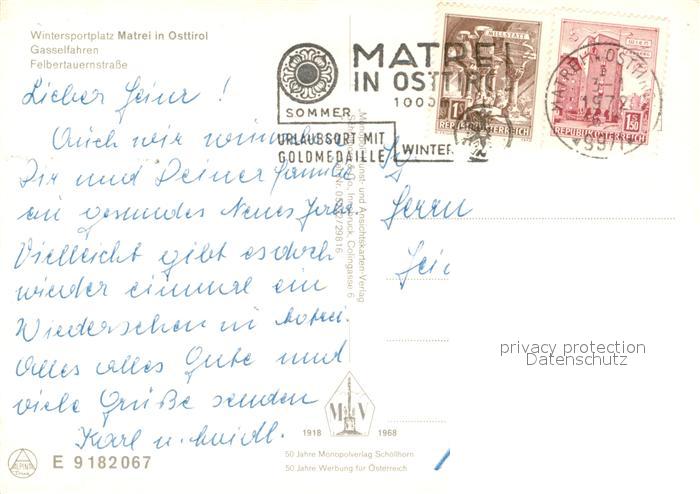 Wintersportplatz Matrei in Osttirol
Gasselfahren
Felbertauernstraße
Lieber Heinz !
Auch wir wünschen
Dir und Deiner Familie
ein gesundes Neues Jahr.
Vielleicht gibt es doch
wieder einmal ein
Wiedersehen in Matrei.
Alles alles Gute und
viele Grüße senden
Karl u.
MATREI
IN OSTTIROL
1000
SOMMER
URLAUBSORT MIT
GOLDMEDAILLE
WINTER
MILLSTATT
REPUBLIK ÖSTERREICH
WIEN
S 1.50
REPUBLIK ÖSTERREICH
MATREI IN OSTTIROL
1972
9971
Kunst- und Ansichtskarten-Verlag
& Co., Innsbruck, Colingasse 6
29816
Herrn
privacy protection
Datenschutz
M V
1918 1968
50 Jahre Monopolverlag Schöllhorn
50 Jahre Werbung für Österreich
ALPINA
E 9182067